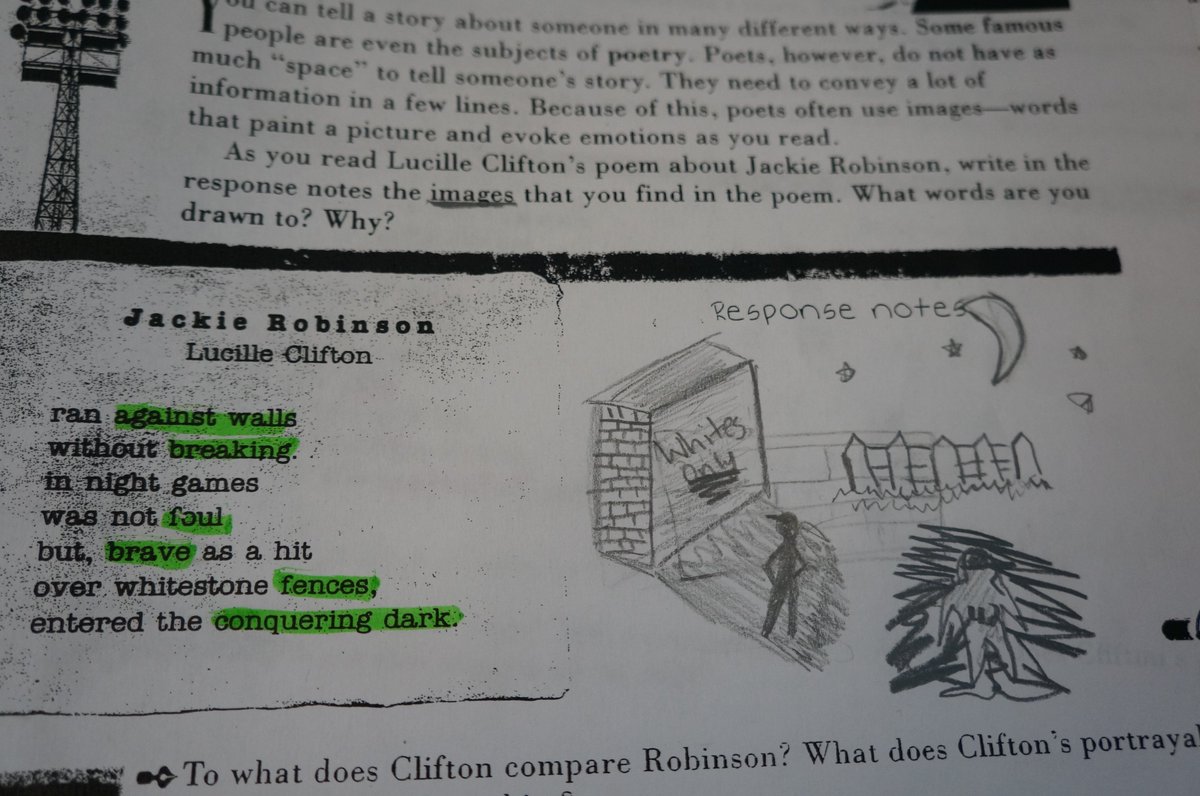 You can tell a story about someone in many different ways. Some famous
people are even the subjects of poetry. Poets, however, do not have as
much “space” to tell someone’s story. They need to convey a lot of
information in a few lines. Because of this, poets often use images—words
that paint a picture and evoke emotions as you read.
As you read Lucille Clifton’s poem about Jackie Robinson, write in the
response notes the images that you find in the poem. What words are you
drawn to? Why?
Jackie Robinson
Lucille Clifton
ran against walls
without breaking.
in night games
was not foul
but, brave as a hit
over whitestone fences,
entered the conquering dark.
Response notes
Whites
only
To what does Clifton compare Robinson? What does Clifton’s portrayal